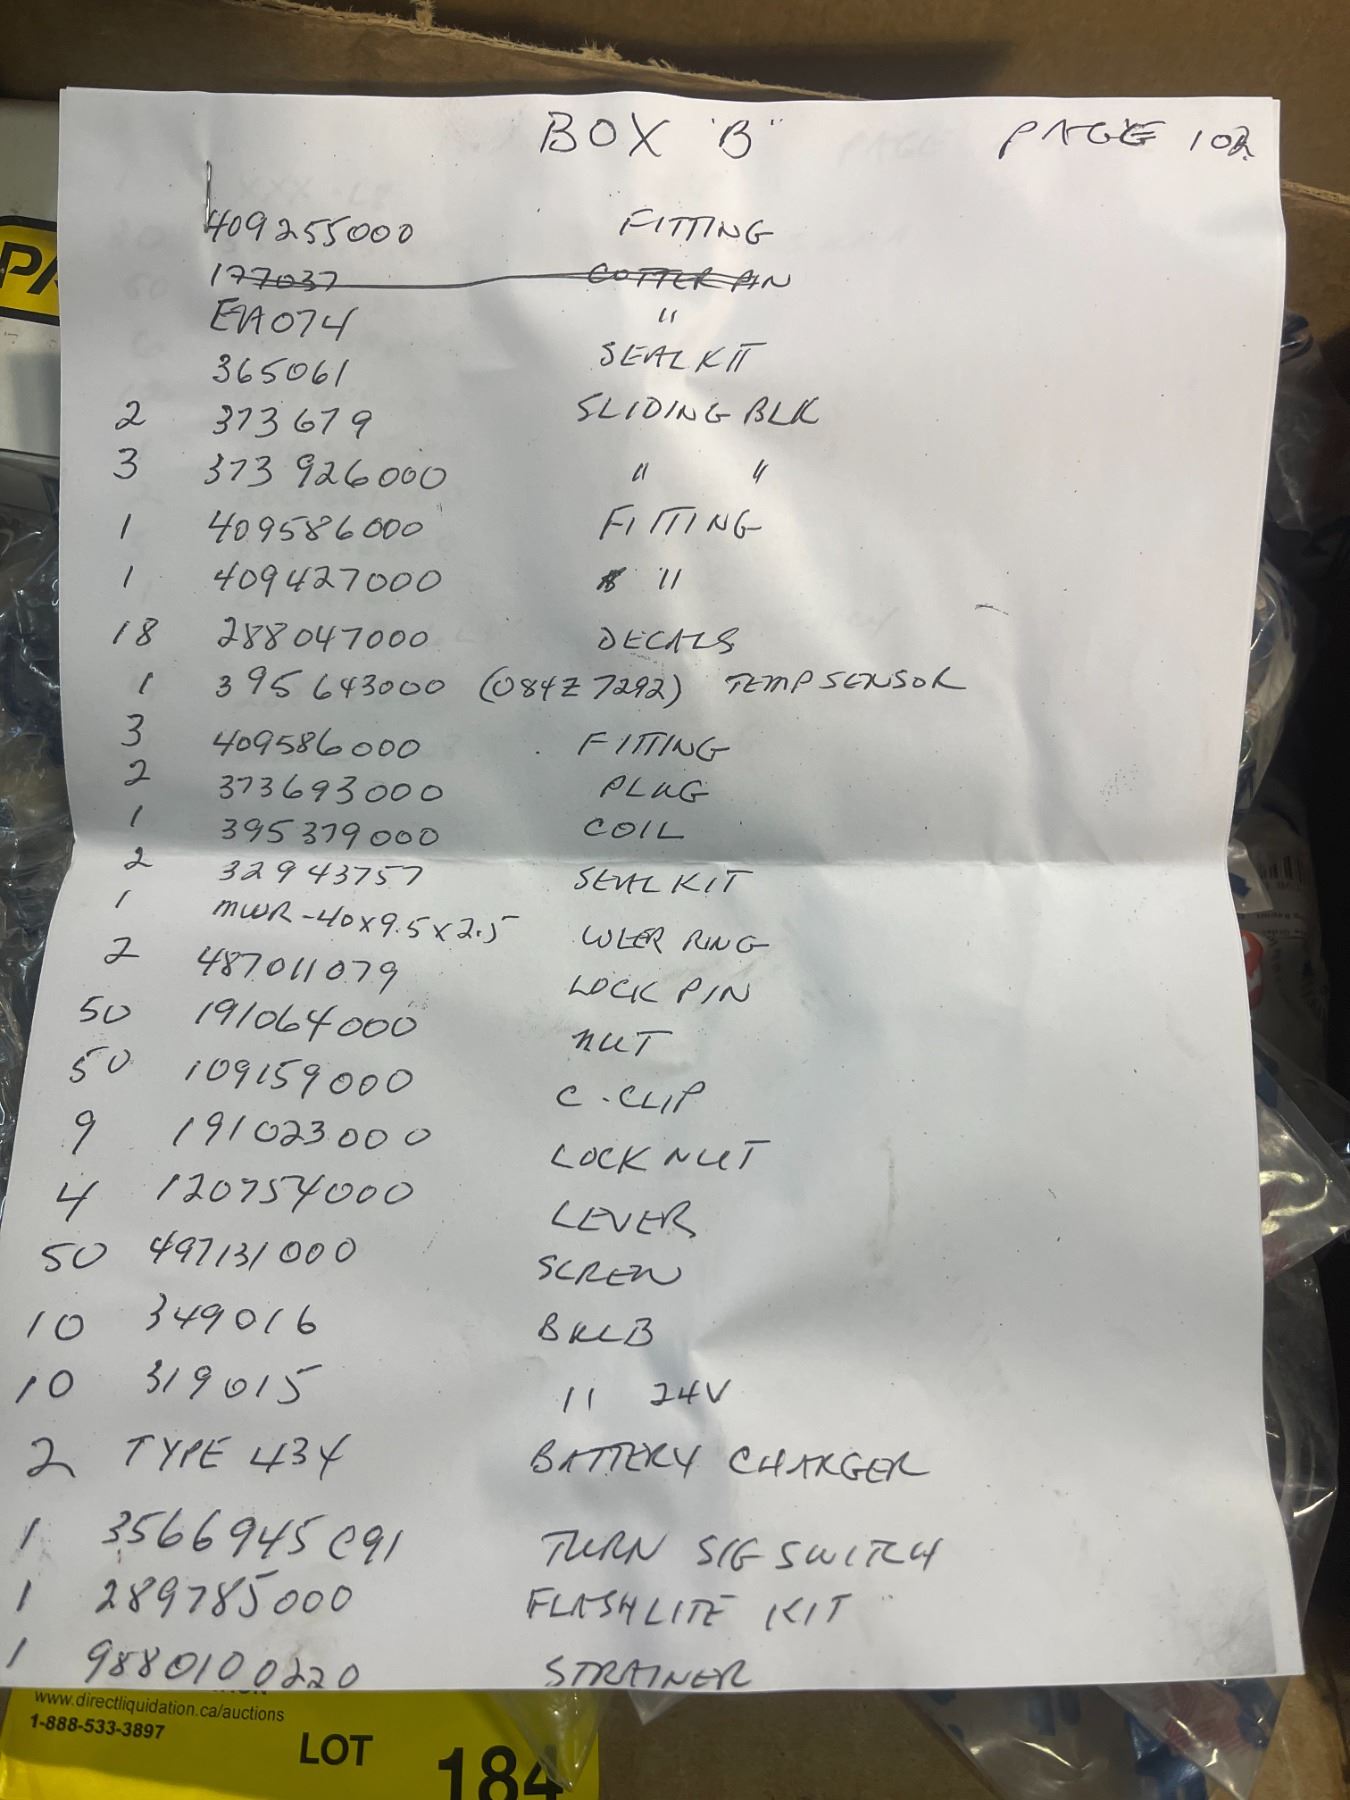 BOX "B" PAGE 1 OF 2
409255000 FITTING
177037 COTTER PIN
EA074 "
365061 SEAL KIT
2 373679 SLIDING BLK
3 373 926000 " "
1 409586000 FITTING
1 409427000 "
18 288047000 DECALS
1 395643000 (084Z7292) TEMP SENSOR
3 409586000 FITTING
2 373693000 PLUG
1 395379000 COIL
2 32943757 SEAL KIT
1 MWR-40X9.5X2.5 WEAR RING
2 487011079 LOCK PIN
50 191064000 NUT
50 109159000 C-CLIP
9 191023000 LOCK NUT
4 120754000 LEVER
50 497131000 SCREW
10 349016 BULB
10 319015 " 24V
2 TYPE 434 BATTERY CHARGER
1 3566945C91 TURN SIG SWITCH
1 289785000 FLASHLITE KIT
1 9880100220 STRAINER
www.directliquidation.ca/auctions
1-888-533-3897
LOT 184